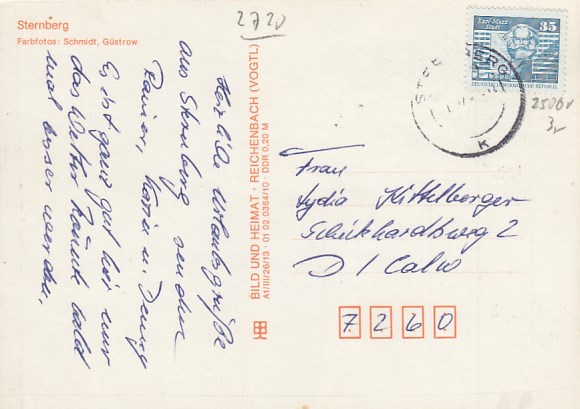 Sternberg
Farbfotos: Schmidt, Güstrow
2720
Herzliche Urlaubsgrüße
aus Sternberg senden
Rainer, Karin u. Jenny
Es ist ganz gut hier nur
das Wetter könnte bald
mal besser werden.
BILD UND HEIMAT · REICHENBACH (VOGTL)
A1/III/26/13 · 01 02 0354/10 · DDR 0,20 M
Karl-Marx-Stadt
35
DEUTSCHE DEMOKRATISCHE REPUBLIK
K
2500
Frau
Lydia Kittelberger
Schükhardtweg 2
D 1 Calw
7260